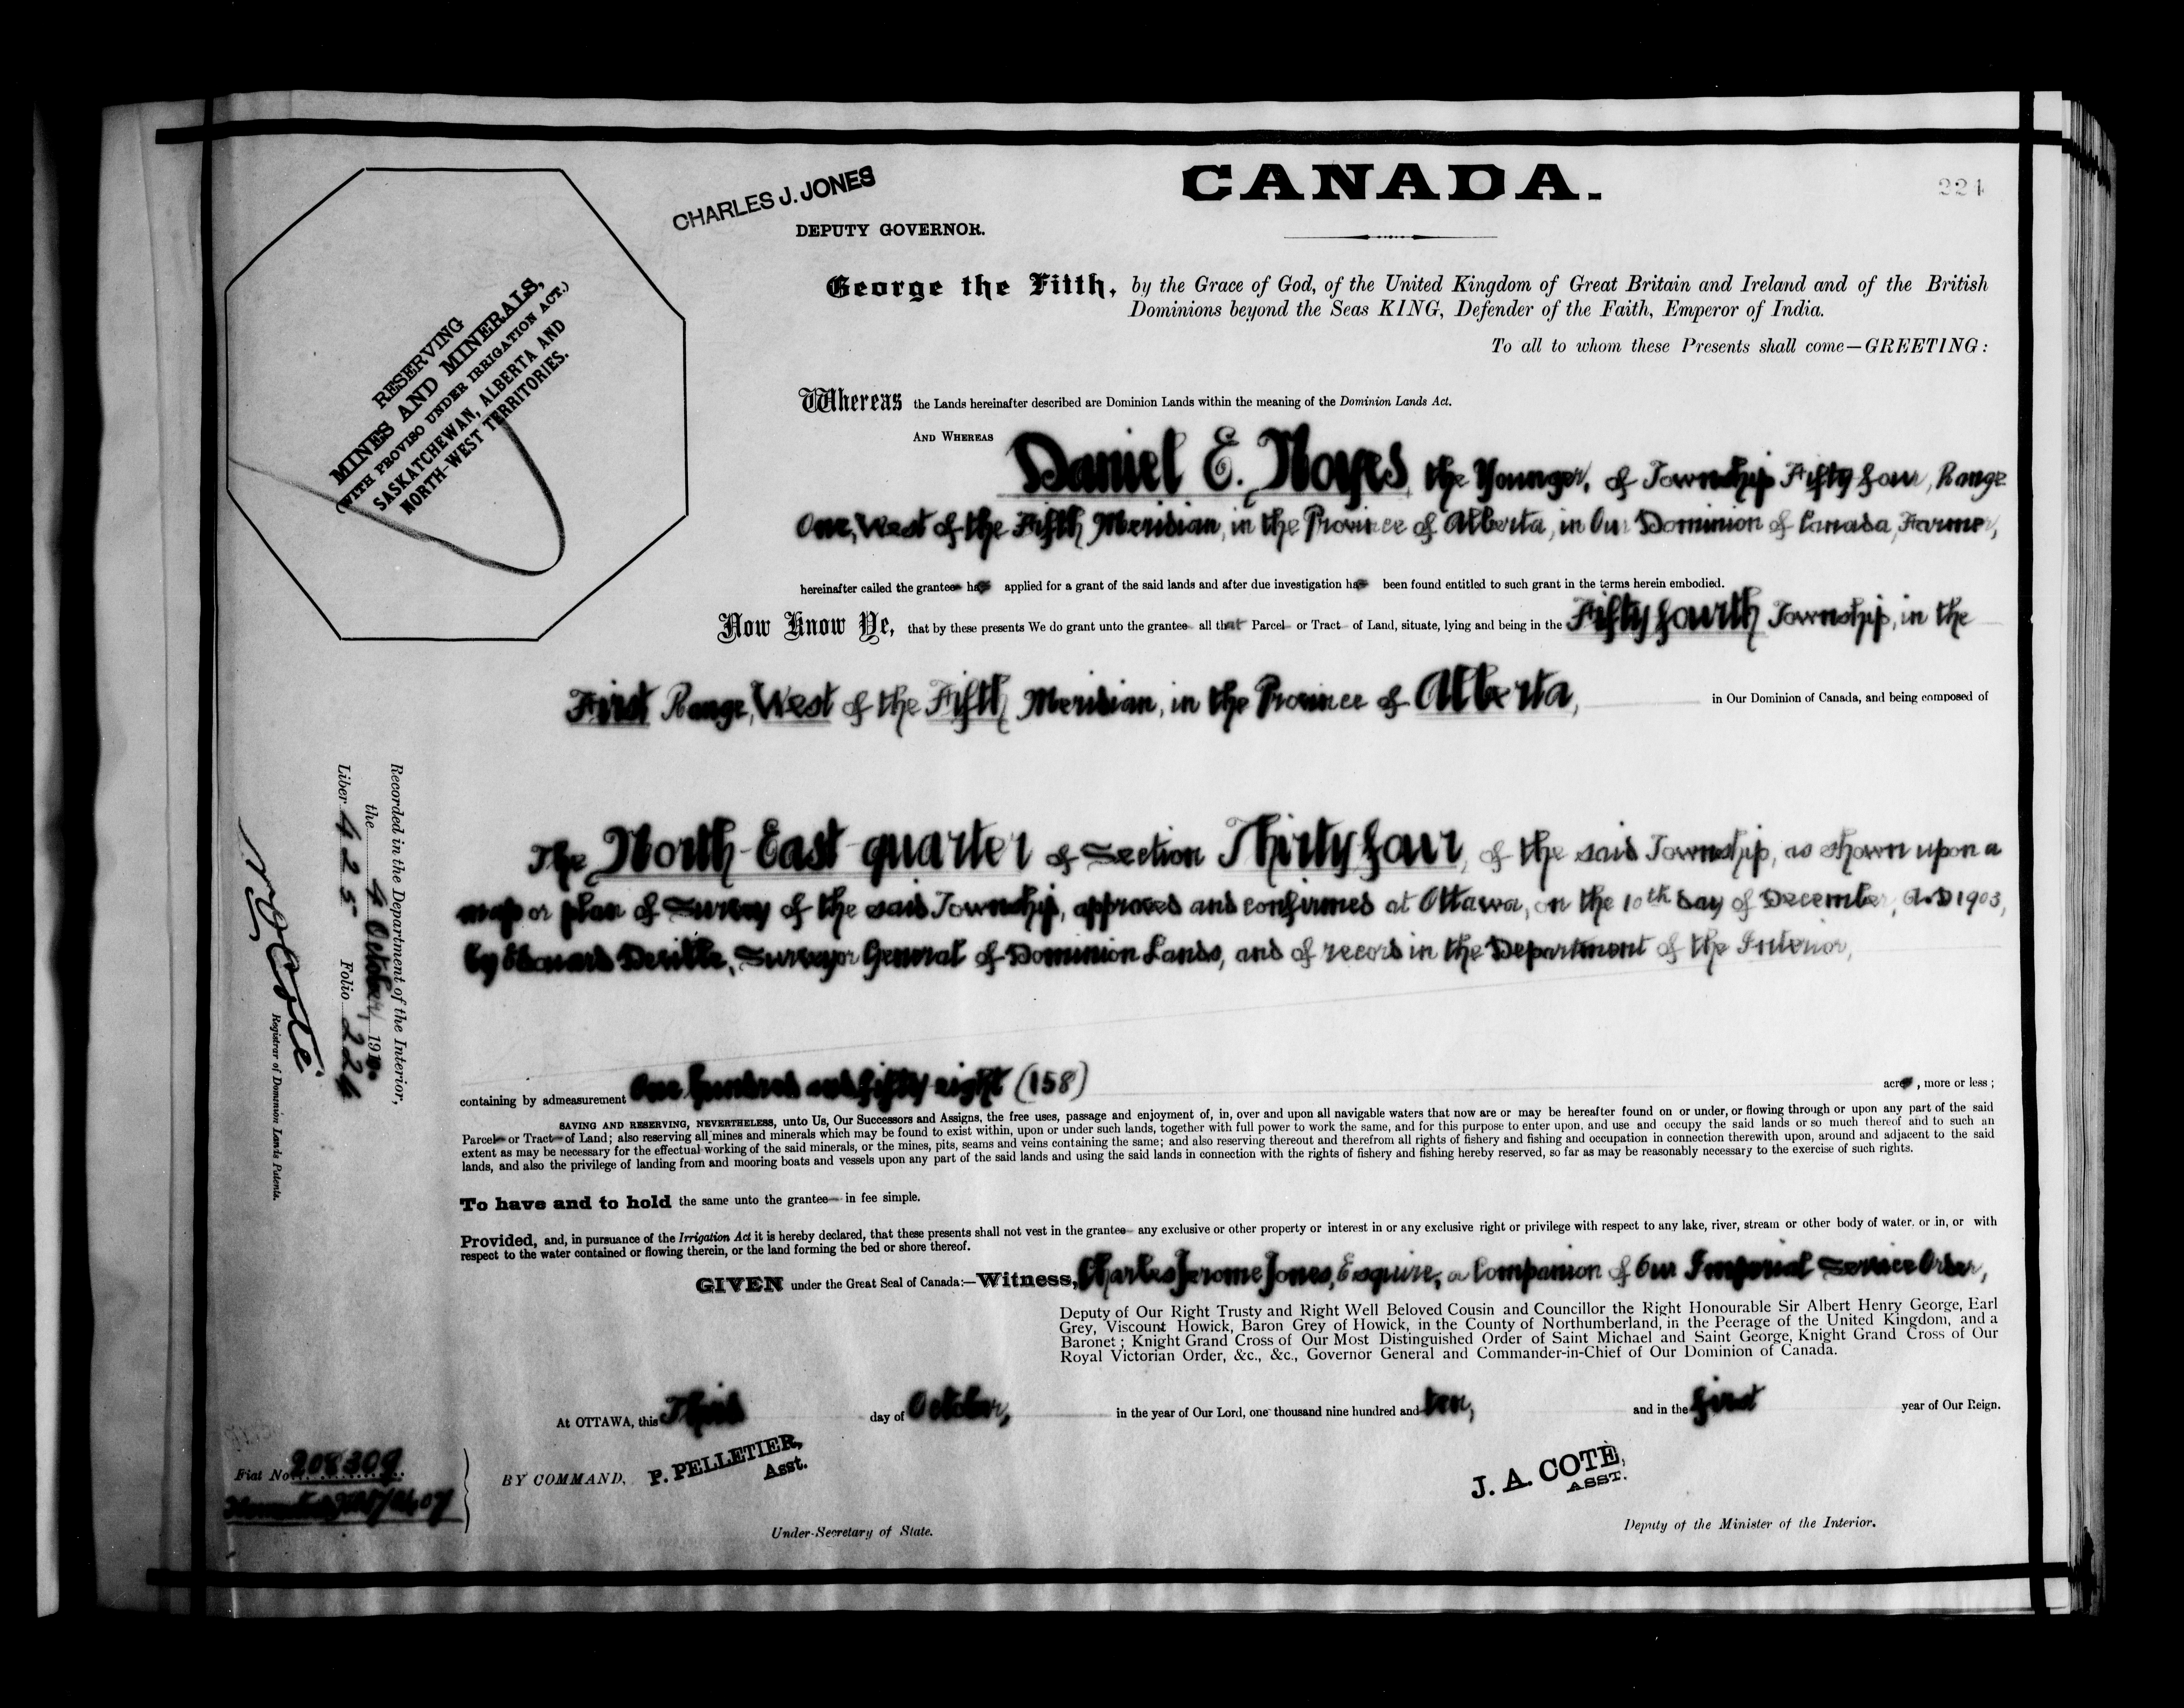 CANADA.
224
CHARLES J. JONES
DEPUTY GOVERNOR.
RESERVING
MINES AND MINERALS,
(WITH PROVISO UNDER IRRIGATION ACT.)
SASKATCHEWAN, ALBERTA AND
NORTH-WEST TERRITORIES.
George the Fifth, by the Grace of God, of the United Kingdom of Great Britain and Ireland and of the British
Dominions beyond the Seas KING, Defender of the Faith, Emperor of India.
To all to whom these Presents shall come—GREETING:
Whereas the Lands hereinafter described are Dominion Lands within the meaning of the Dominion Lands Act.
AND WHEREAS Daniel E. Noyes, the Younger, of Township Fifty four, Range
One, West of the Fifth Meridian, in the Province of Alberta, in Our Dominion of Canada, Farmer,
hereinafter called the grantee has applied for a grant of the said lands and after due investigation has been found entitled to such grant in the terms herein embodied.
Now Know Ye, that by these presents We do grant unto the grantee all that Parcel or Tract of Land, situate, lying and being in the Fifty fourth Township, in the
First Range, West of the Fifth Meridian, in the Province of Alberta, in Our Dominion of Canada, and being composed of
The North-East quarter of Section Thirty four, of the said Township, as shown upon a
map or plan of Survey of the said Township, approved and confirmed at Ottawa, on the 10th day of December, A.D 1903,
by Edouard Deville, Surveyor General of Dominion Lands, and of record in the Department of the Interior,
containing by admeasurement One hundred and fifty eight (158) acres, more or less;
SAVING AND RESERVING, NEVERTHELESS, unto Us, Our Successors and Assigns, the free uses, passage and enjoyment of, in, over and upon all navigable waters that now are or may be hereafter found on or under, or flowing through or upon any part of the said
Parcel or Tract of Land; also reserving all mines and minerals which may be found to exist within, upon or under such lands, together with full power to work the same, and for this purpose to enter upon, and use and occupy the said lands or so much thereof and to such an
extent as may be necessary for the effectual working of the said minerals, or the mines, pits, seams and veins containing the same; and also reserving thereout and therefrom all rights of fishery and fishing and occupation in connection therewith upon, around and adjacent to the said
lands, and also the privilege of landing from and mooring boats and vessels upon any part of the said lands and using the said lands in connection with the rights of fishery and fishing hereby reserved, so far as may be reasonably necessary to the exercise of such rights.
To have and to hold the same unto the grantee in fee simple.
Provided, and, in pursuance of the Irrigation Act it is hereby declared, that these presents shall not vest in the grantee any exclusive or other property or interest in or any exclusive right or privilege with respect to any lake, river, stream or other body of water, or in, or with
respect to the water contained or flowing therein, or the land forming the bed or shore thereof.
GIVEN under the Great Seal of Canada:—Witness, Charles Jerome Jones, Esquire, a Companion of Our Imperial Service Order,
Deputy of Our Right Trusty and Right Well Beloved Cousin and Councillor the Right Honourable Sir Albert Henry George, Earl
Grey, Viscount Howick, Baron Grey of Howick, in the County of Northumberland, in the Peerage of the United Kingdom, and a
Baronet; Knight Grand Cross of Our Most Distinguished Order of Saint Michael and Saint George, Knight Grand Cross of Our
Royal Victorian Order, &c., &c., Governor General and Commander-in-Chief of Our Dominion of Canada.
At OTTAWA, this Third day of October, in the year of Our Lord, one thousand nine hundred and ten, and in the first year of Our Reign.
BY COMMAND, P. PELLETIER, Asst.
Under-Secretary of State.
J. A. COTÉ, ASST.
Deputy of the Minister of the Interior.
Recorded in the Department of the Interior,
the 4 October 1910.
Liber 425 Folio 224
Registrar of Dominion Lands Patents.
Fiat No. 208309